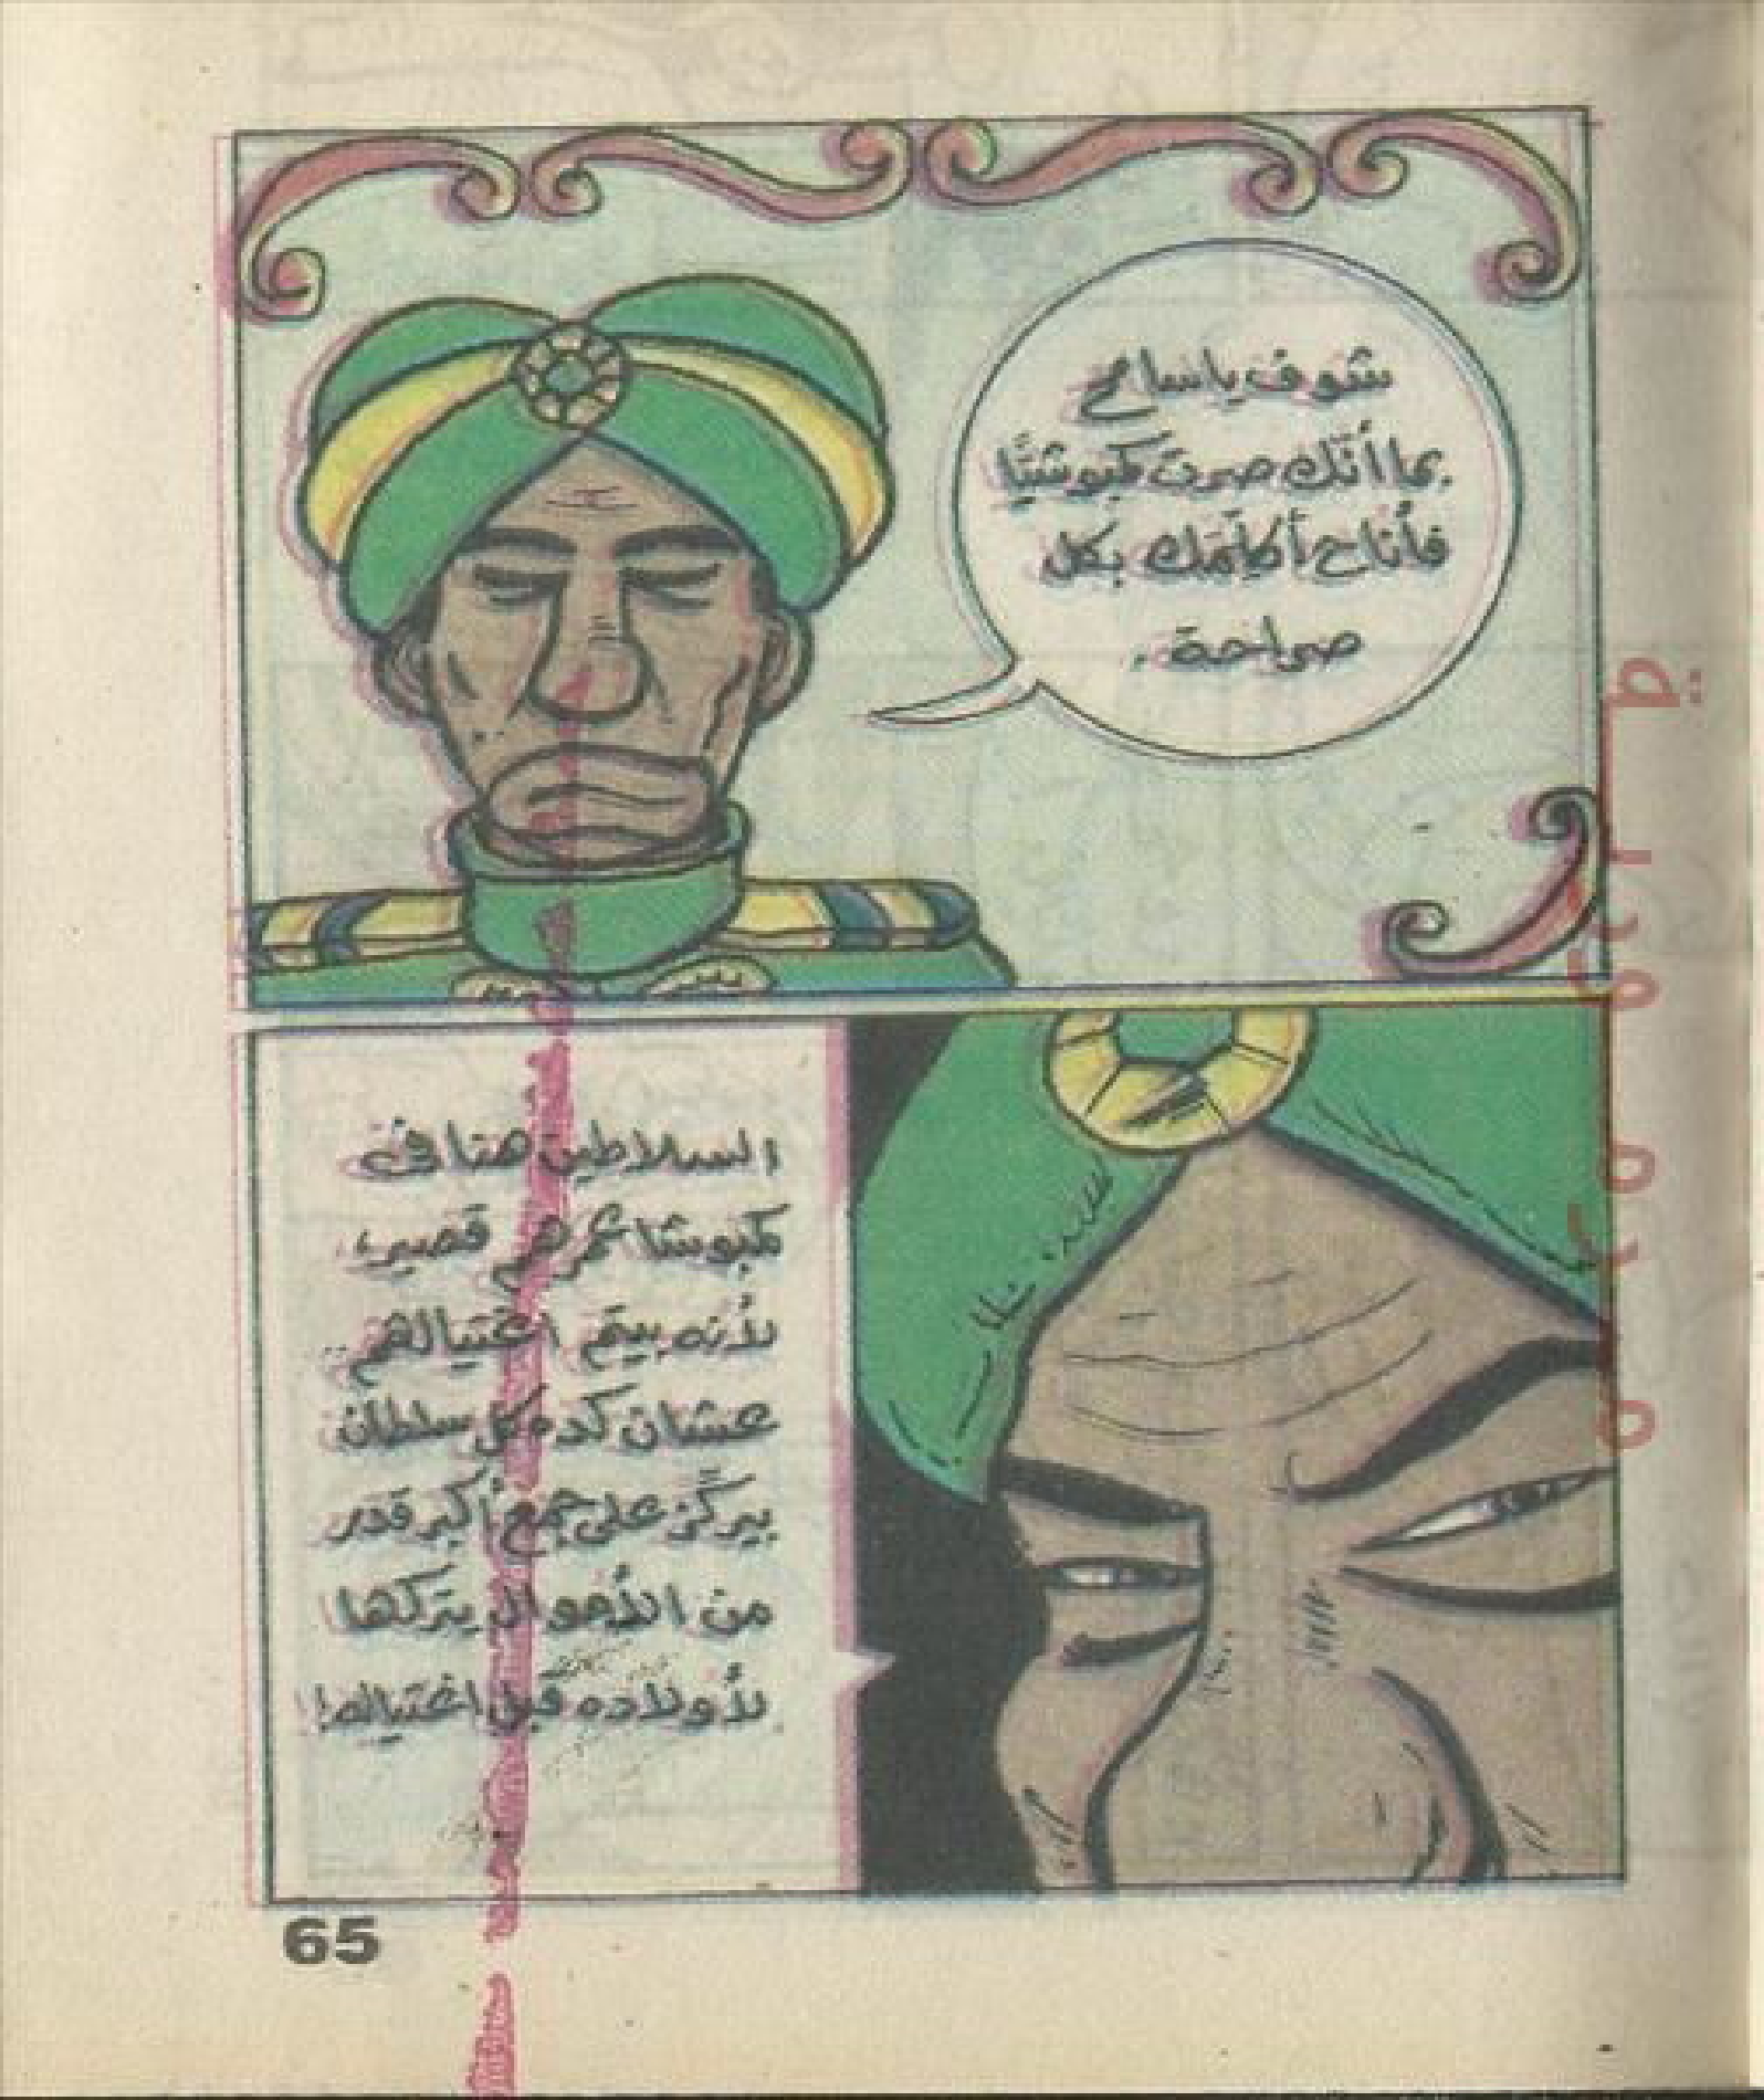 شوف يا سامح
بما أنّك صرت كبوشيًّا
فأنا ح أكلّمك بكل
صراحة.
السلاطين هنا في
كبوشا عمرهم قصير،
لأنه بيتم اغتيالهم..
عشان كده كل سلطان
بيركّز على جمع أكبر قدر
من الأموال يتركها
لأولاده قبل اغتياله!
65